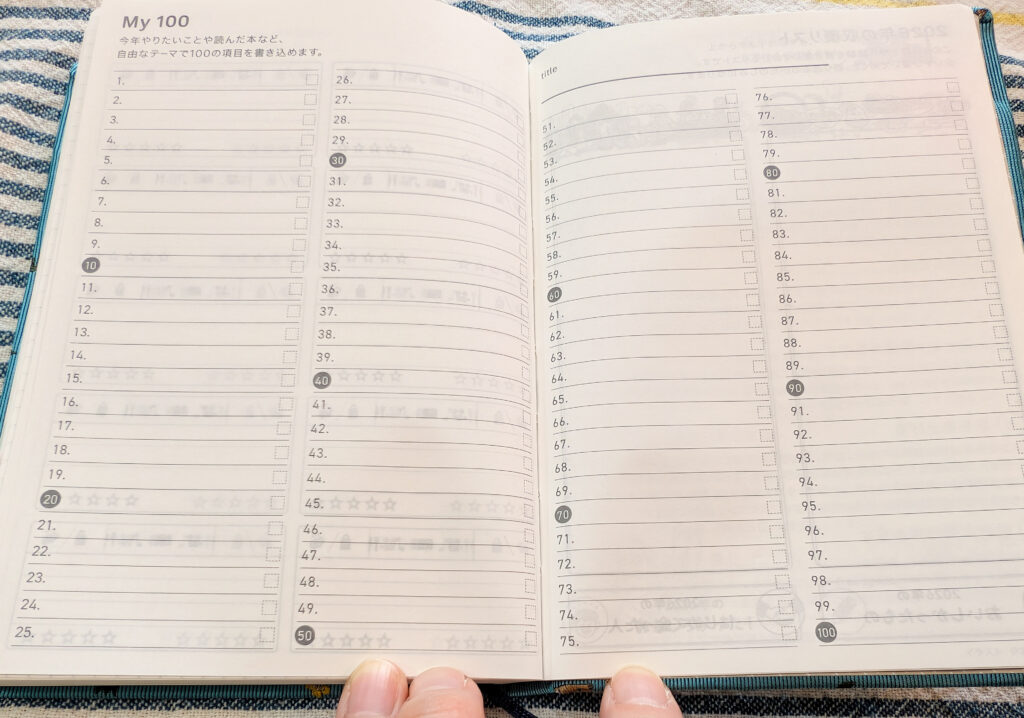 My 100
今年やりたいことや読んだ本など、
自由なテーマで100の項目を書き込めます。
1.
2.
3.
4.
5.
6.
7.
8.
9.
10
11.
12.
13.
14.
15.
16.
17.
18.
19.
20
21.
22.
23.
24.
25.
26.
27.
28.
29.
30
31.
32.
33.
34.
35.
36.
37.
38.
39.
40
41.
42.
43.
44.
45.
46.
47.
48.
49.
50
title
51.
52.
53.
54.
55.
56.
57.
58.
59.
60
61.
62.
63.
64.
65.
66.
67.
68.
69.
70
71.
72.
73.
74.
75.
76.
77.
78.
79.
80
81.
82.
83.
84.
85.
86.
87.
88.
89.
90
91.
92.
93.
94.
95.
96.
97.
98.
99.
100